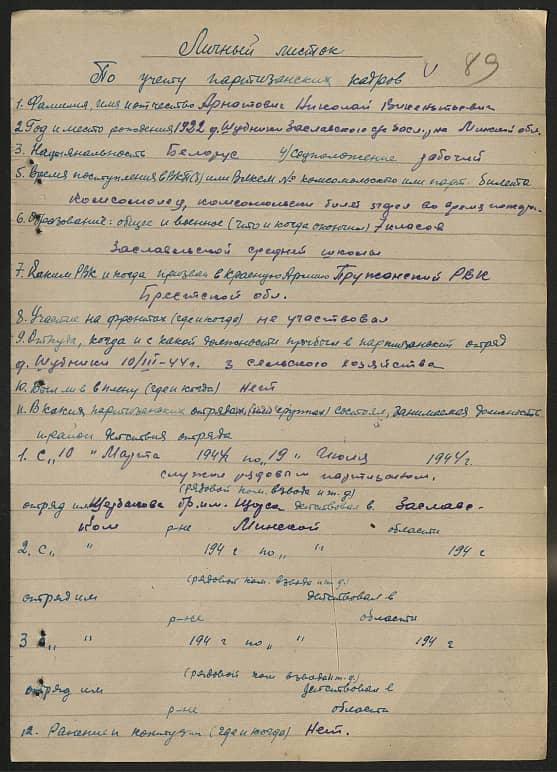 Личный листок
По учету партизанских кадров V 89
1. Фамилия, имя и отчество Арнатович Николай Викентьевич
2. Год и место рождения 1922 д. Шубники Заславского с/с Засл. р-на Минской обл.
3. Национальность Белорус 4/ соцположение рабочий
5. Время поступления в ВКП(б) или ВЛКСМ № комсомольского или парт. билета
Комсомолец, комсомольский билет во время
6. Образование: общее и военное (что и когда окончил) 7 классов
Заславльской средней школы
7. Каким РВК и когда призван в Красную Армию Пружанский РВК
Брестской обл.
8. Участие на фронтах (где и когда) не участвовал
9. Откуда, когда и с какой должности прибыл в партизанский отряд
д. Шубники 10/III-44г. з сельского хозяйства
10. Был ли в плену (где и когда) Нет
11. В каких партизанских отрядах, (или группах) состоял, занимаемая должность
и район действия отряда
1. С „10 " Марта 1944г по „19 " Июля 1944г.
служил рядовым партизаном.
(рядовой ком. взвода и т. д)
отряд им Щербакова бр. им. Щорса действовал в Заславс-
ком р-не Минской области
2. С „ " 194 г по „ " 194 г
(рядовой ком. взвода и т. д.)
отряд им действовал в
р-не области
3 С „ " 194 г по „ " 194 г
(рядовой ком взвода и т. д.)
отряд им действовал в
р-не области
12. Ранения и контузии (где и когда) Нет.